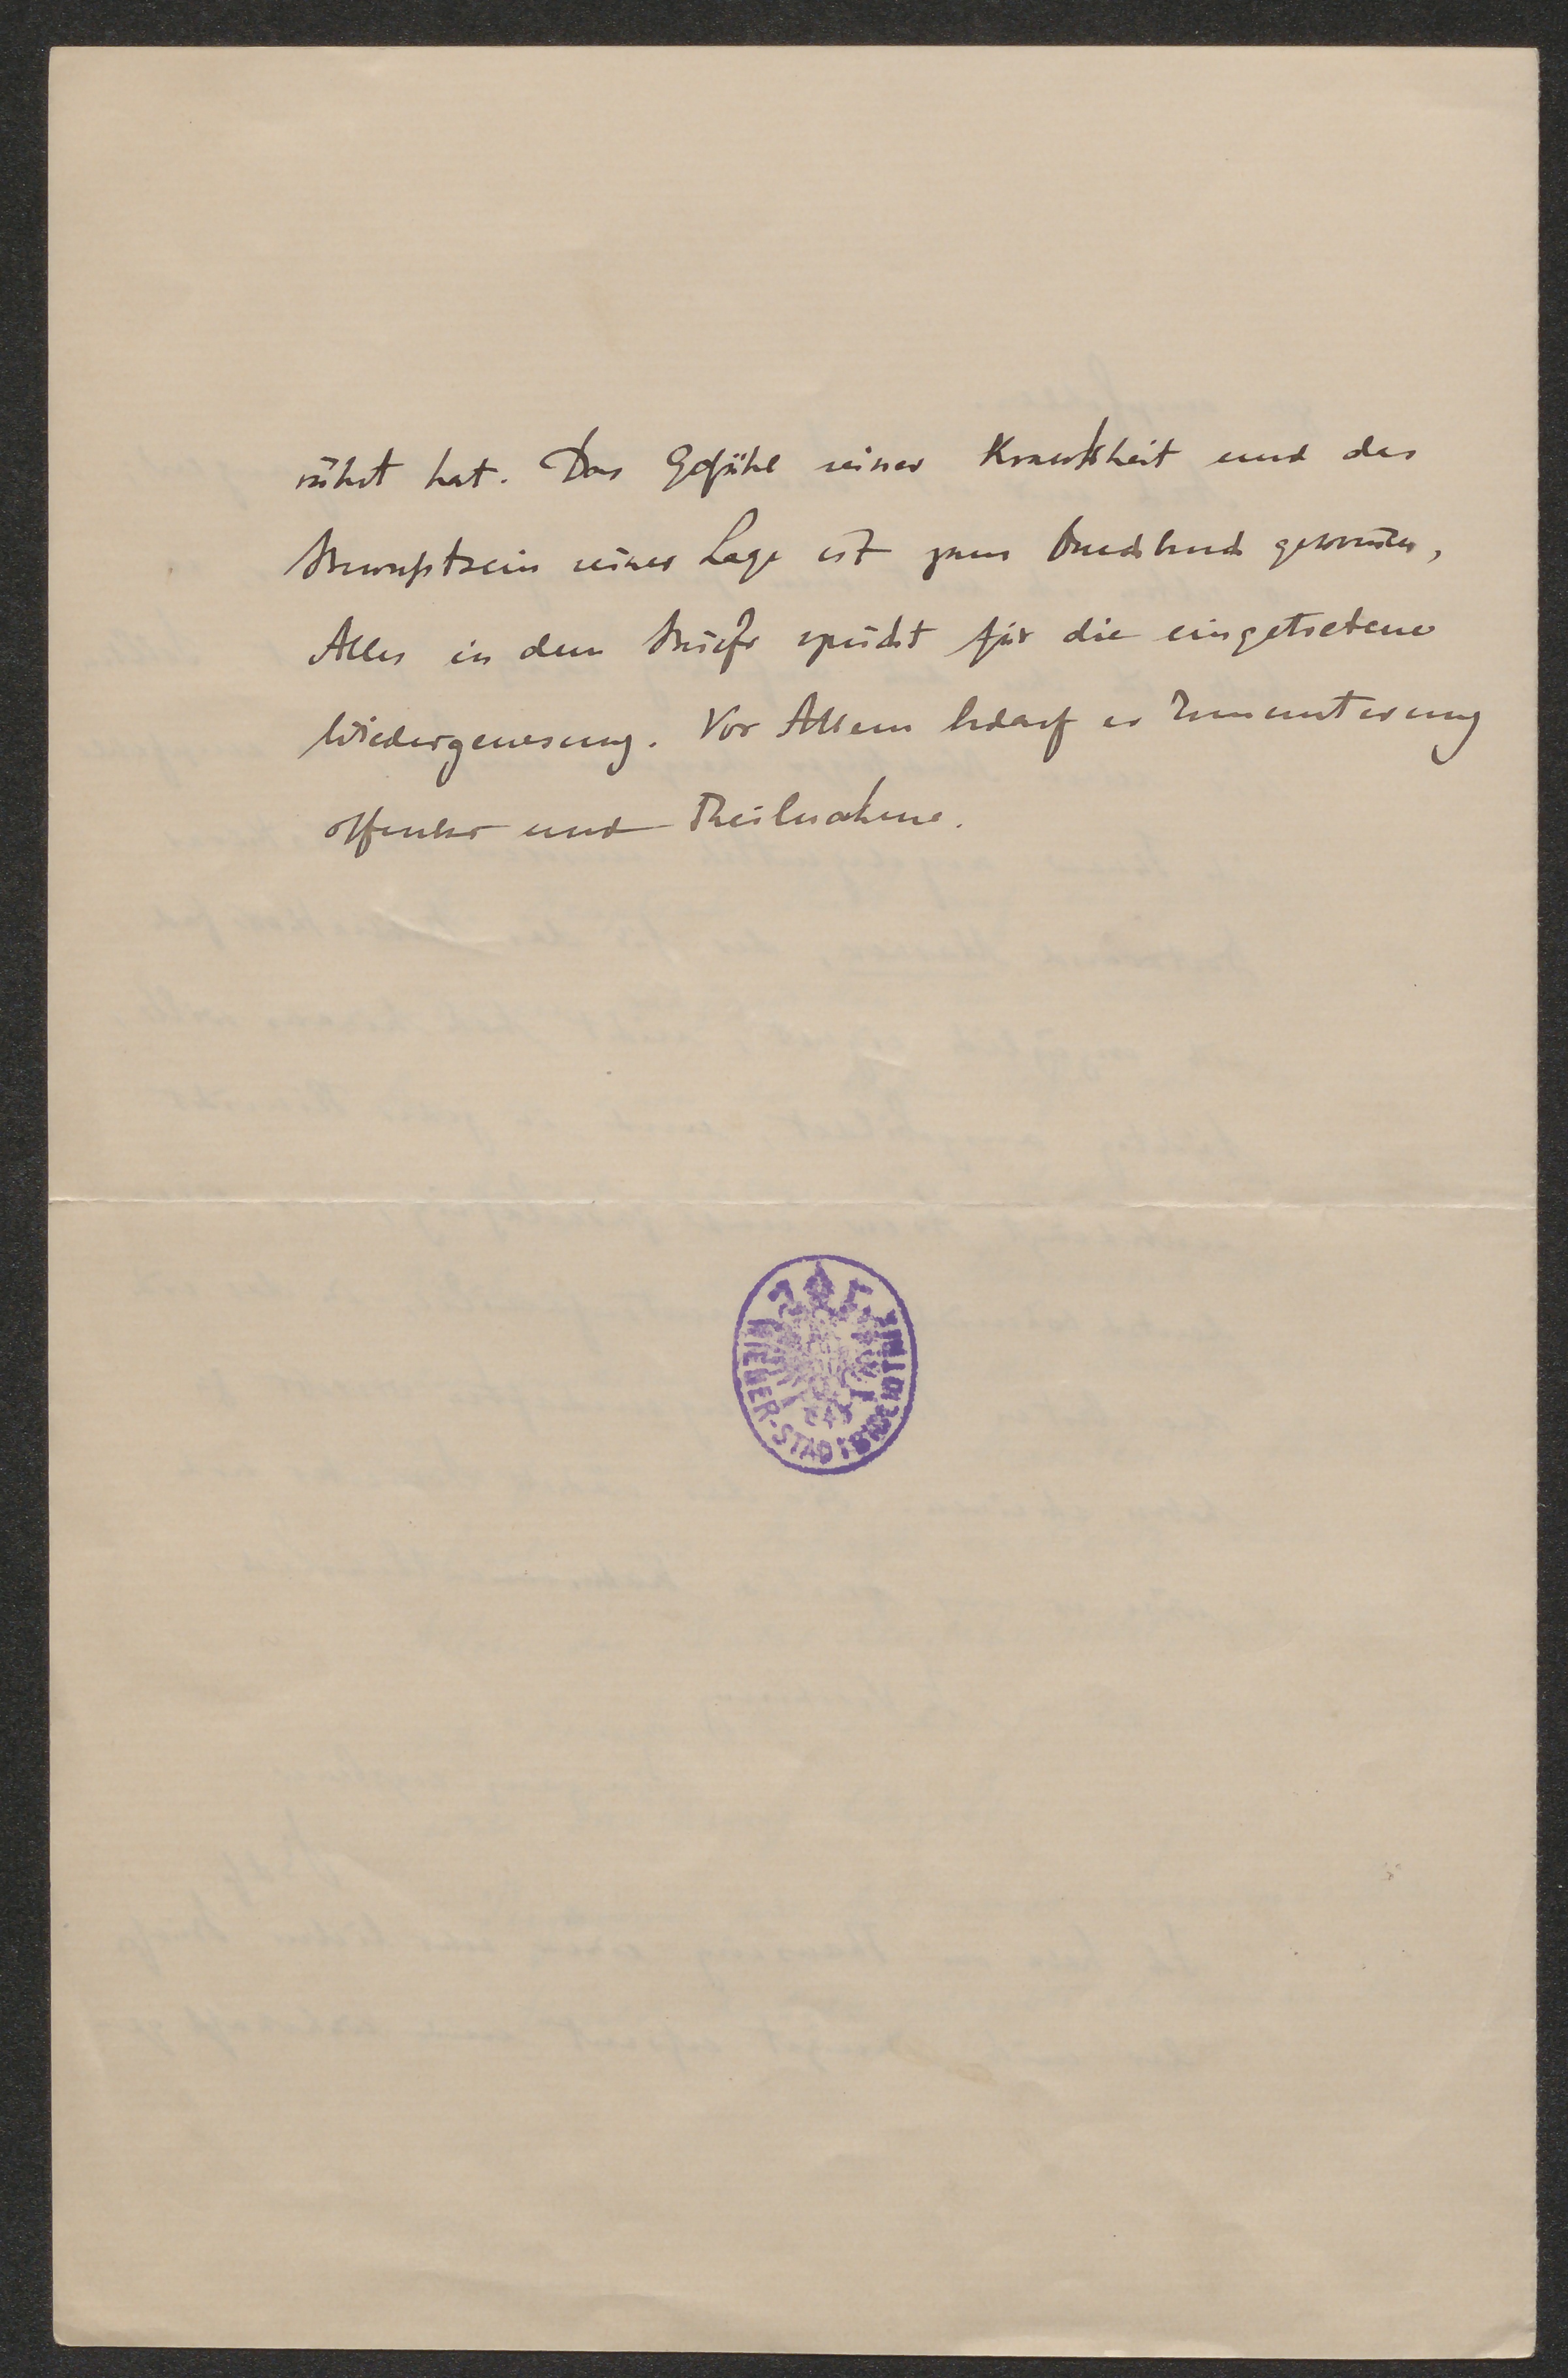 rührt hat. Das Gefühl seiner Krankheit und das
Bewußtsein seiner Lage ist zum Durchbruch gekommen,
Alles in dem Briefe spricht für die eingetretene
Wiedergenesung. Vor Allem bedarf er Ermunterung
offenbar und Theilnahme.
WIENER-STADTBIBLIOTHEK